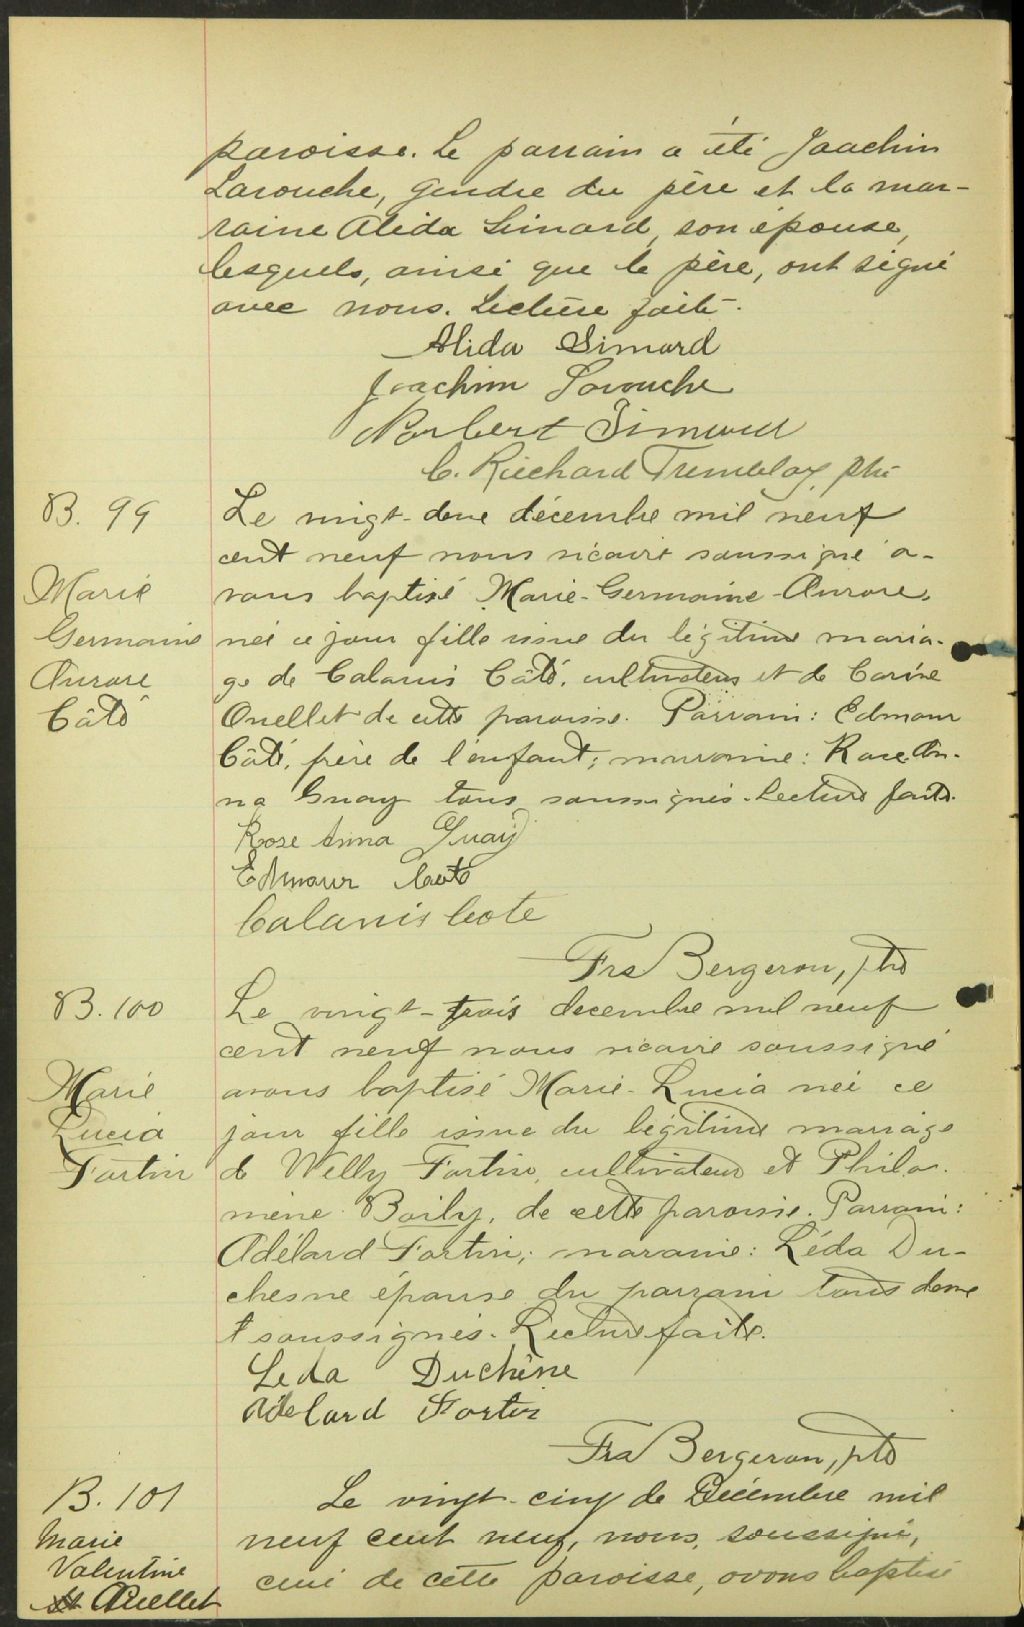 paroisse. Le parrain a été Joachin
Larouche, gendre du père et la mar-
raine Alida Simard, son épouse,
lesquels, ainsi que le père, ont signé
avec nous. Lecture faite.
Alida Simard
Joachim Larouche
Norbert Simard
C. Richard Tremblay, ptre
B. 99
Marie
Germaine
Aurore
Côté
Le vingt-deux décembre mil neuf
cent neuf nous vicaire soussigné a-
vons baptisé Marie-Germaine-Aurore,
née ce jour fille issue du légitime maria-
ge de Calanis Côté, cultivateur et de
Ouellet de cette paroisse. Parrain: Edmour
Côté, frère de l'enfant; marraine: Rose An-
na Guay tous soussignés. Lecture faite.
Rose Anna Guay
Edmour Coté
Calanis Cote
Frs Bergeron, ptre
B. 100
Marie
Lucia
Fortin
Le vingt-trois decembre mil neuf
cent neuf nous vicaire soussigné
avons baptisé Marie-Lucia née ce
jour fille issue du légitime mariage
de Welly Fortin, cultivateur et Philo-
mène Boily, de cette paroisse. Parrain:
Adélard Fortin; maraine: Léda Du-
chesne épouse du parrain tous deux
soussignés. Lecture faite.
Leda Duchêne
Adelard Fortin
Frs Bergeron, ptre
B. 101
Marie
Valentine
Ouellet
Le vingt-cinq de Décembre mil
neuf cent neuf, nous, soussigné,
curé de cette paroisse, avons baptisé